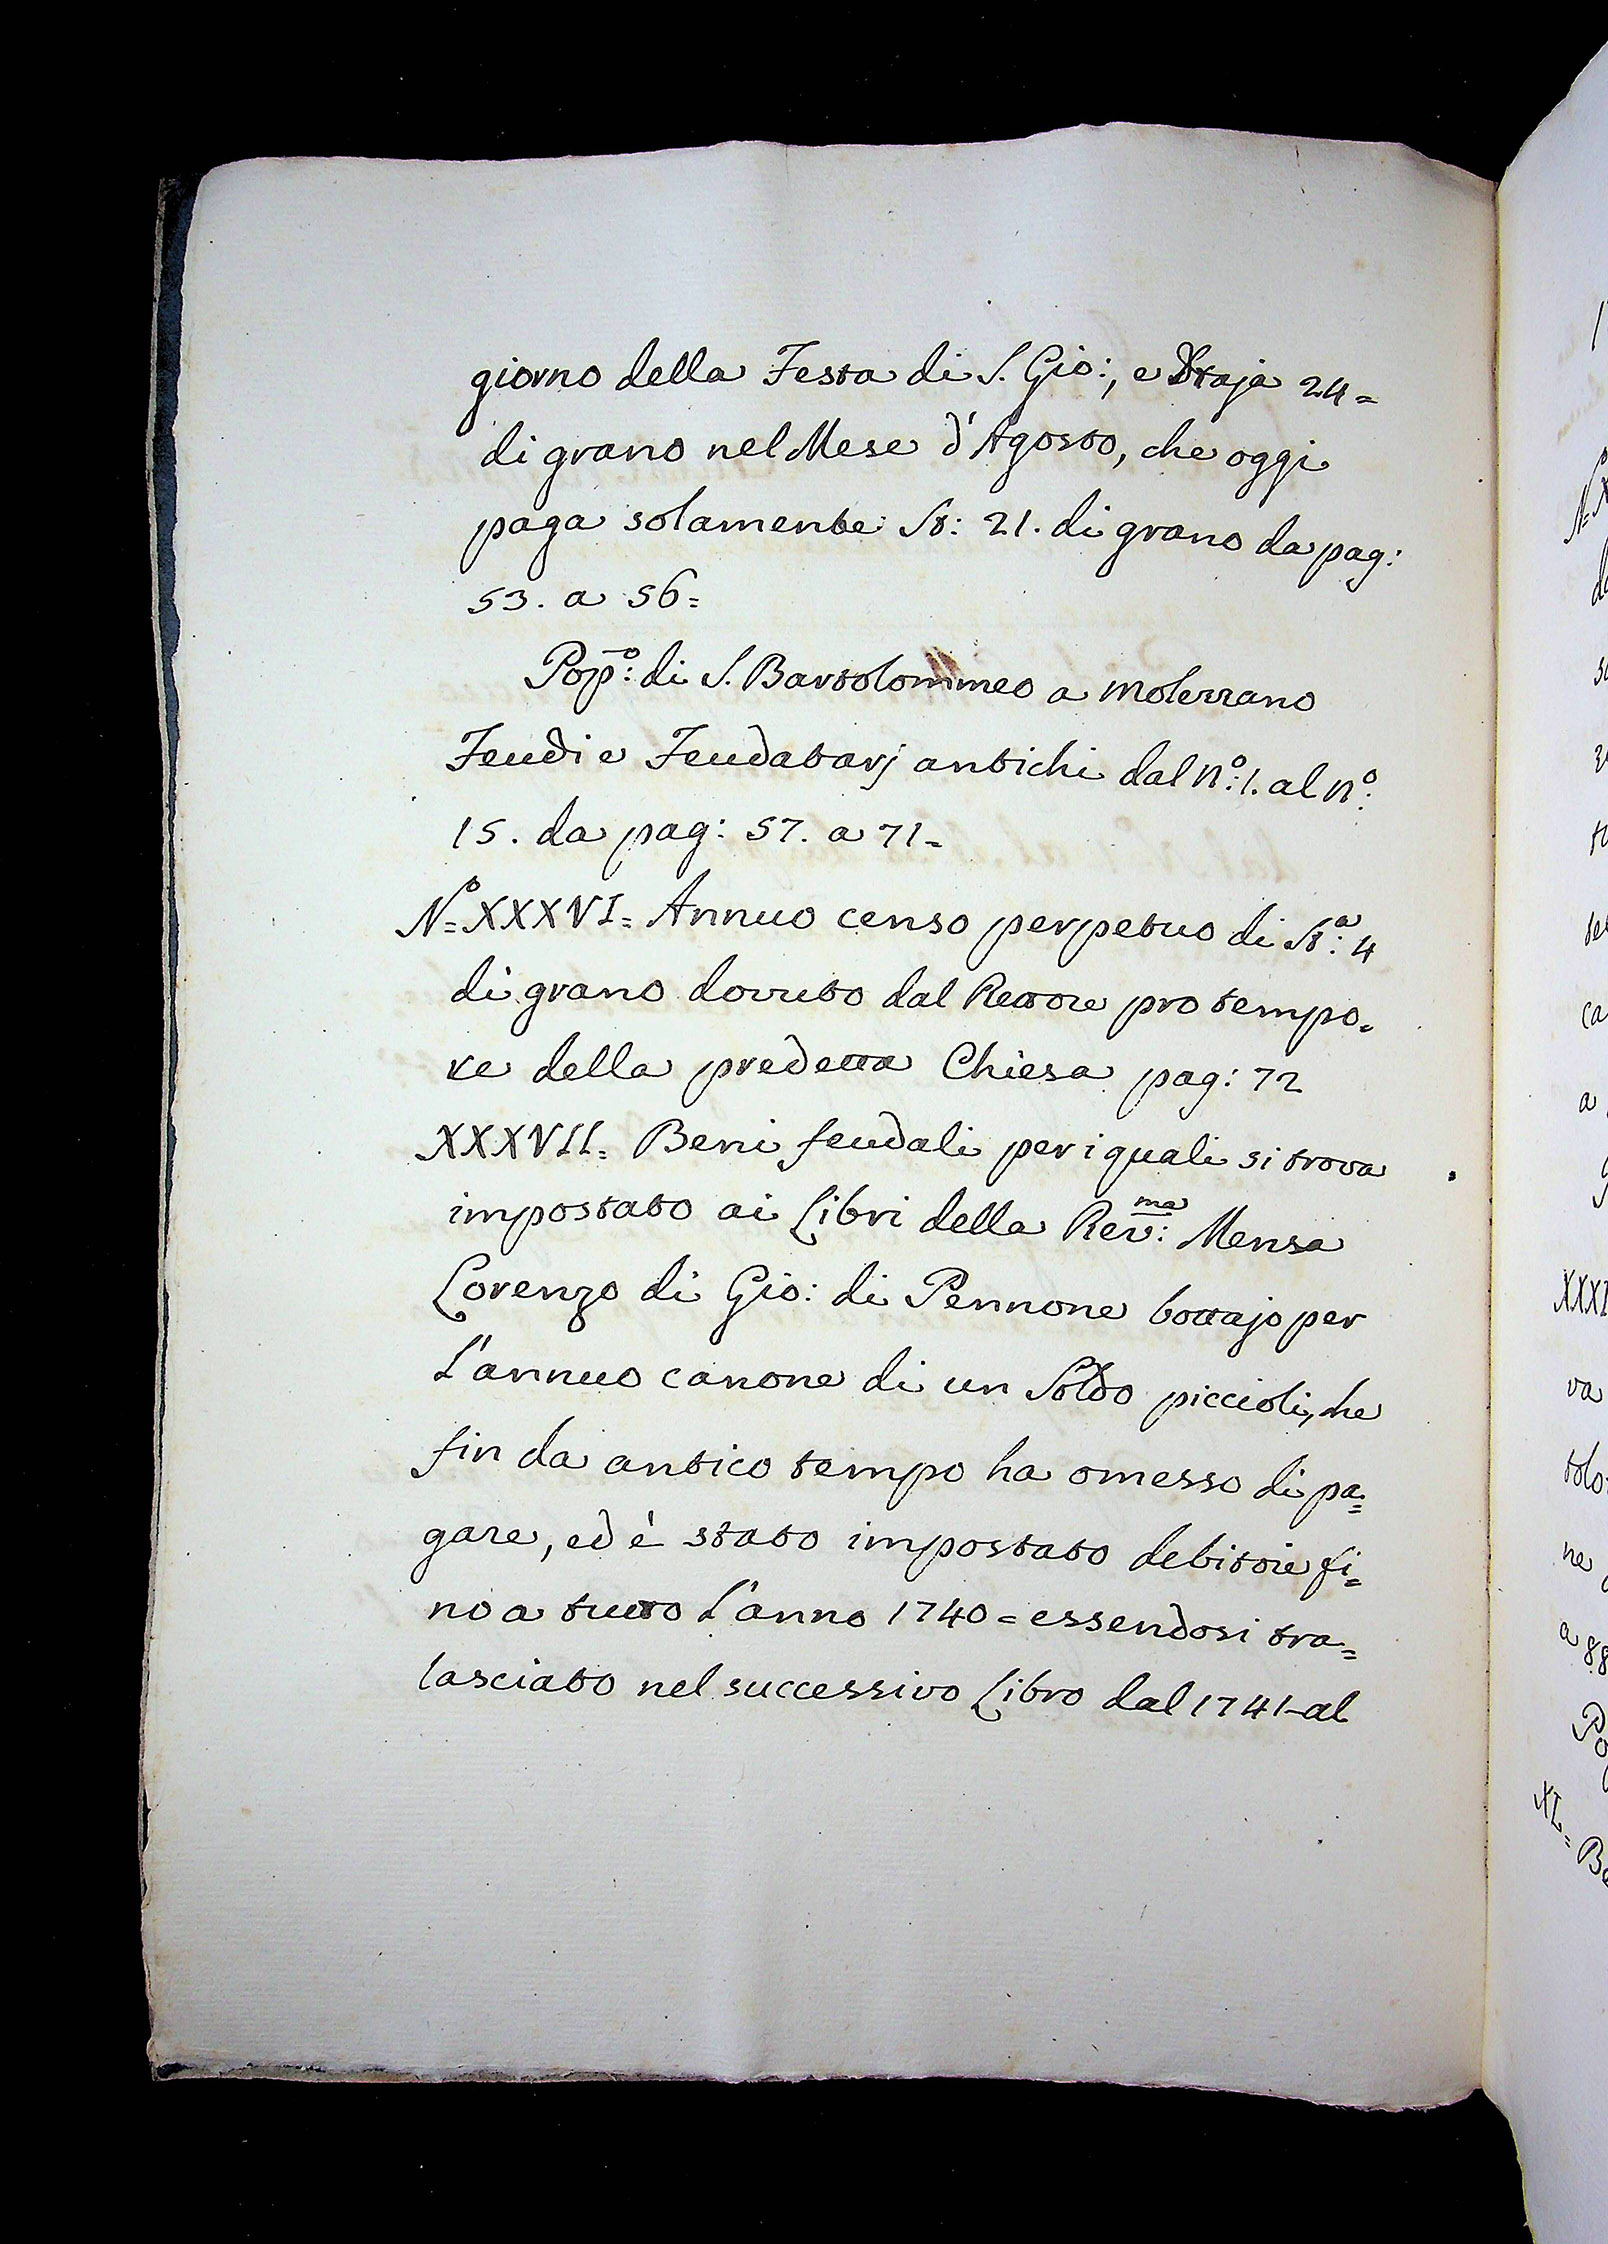 giorno della Festa di S. Gio:, e Staja 24=
di grano nel Mese d'Agosto, che oggi
paga solamente St: 21. di grano da pag:
53. a 56=
Pop.º: di S. Bartolommeo a Molezzano
Feudi e Feudatarj antichi dal nº: 1. al nº:
15. da pag: 57. a 71=
Nº= XXXVI= Annuo censo perpetuo di Stª: 4
di grano dovuto dal Rettore pro tempo=
re della predetta Chiesa pag: 72
XXXVII= Beni feudali per i quali si trova
impostato ai Libri della Rev:ma Mensa
Lorenzo di Gio: di Pennone bottajo per
l'annuo canone di un Soldo piccioli, che
fin da antico tempo ha omesso di pa=
gare, ed è stato impostato debitore fi=
no a tutto l'anno 1740= essendosi tra=
lasciato nel successivo Libro dal 1741-al